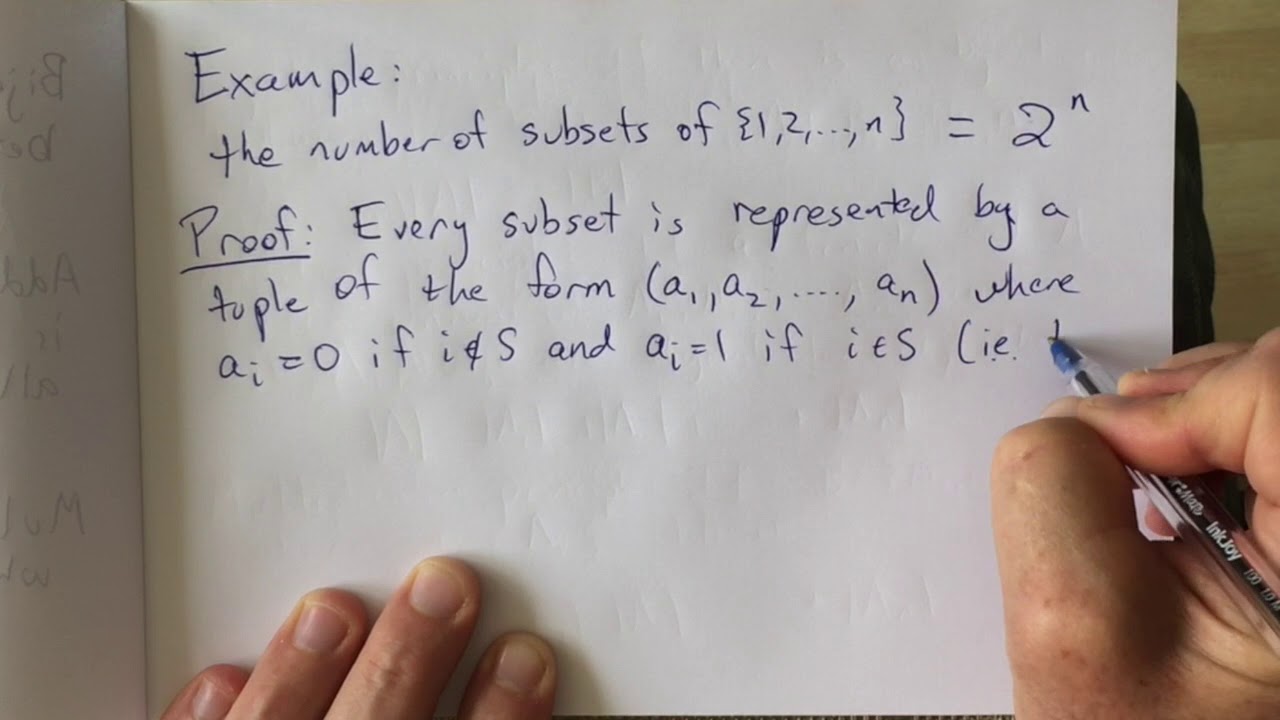 Example:
the number of subsets of {1,2,...,n} = 2ⁿ
Proof: Every subset is represented by a
tuple of the form (a₁,a₂,....,aₙ) where
aᵢ=0 if i∉S and aᵢ=1 if i∈S (ie.
InkJoy 100